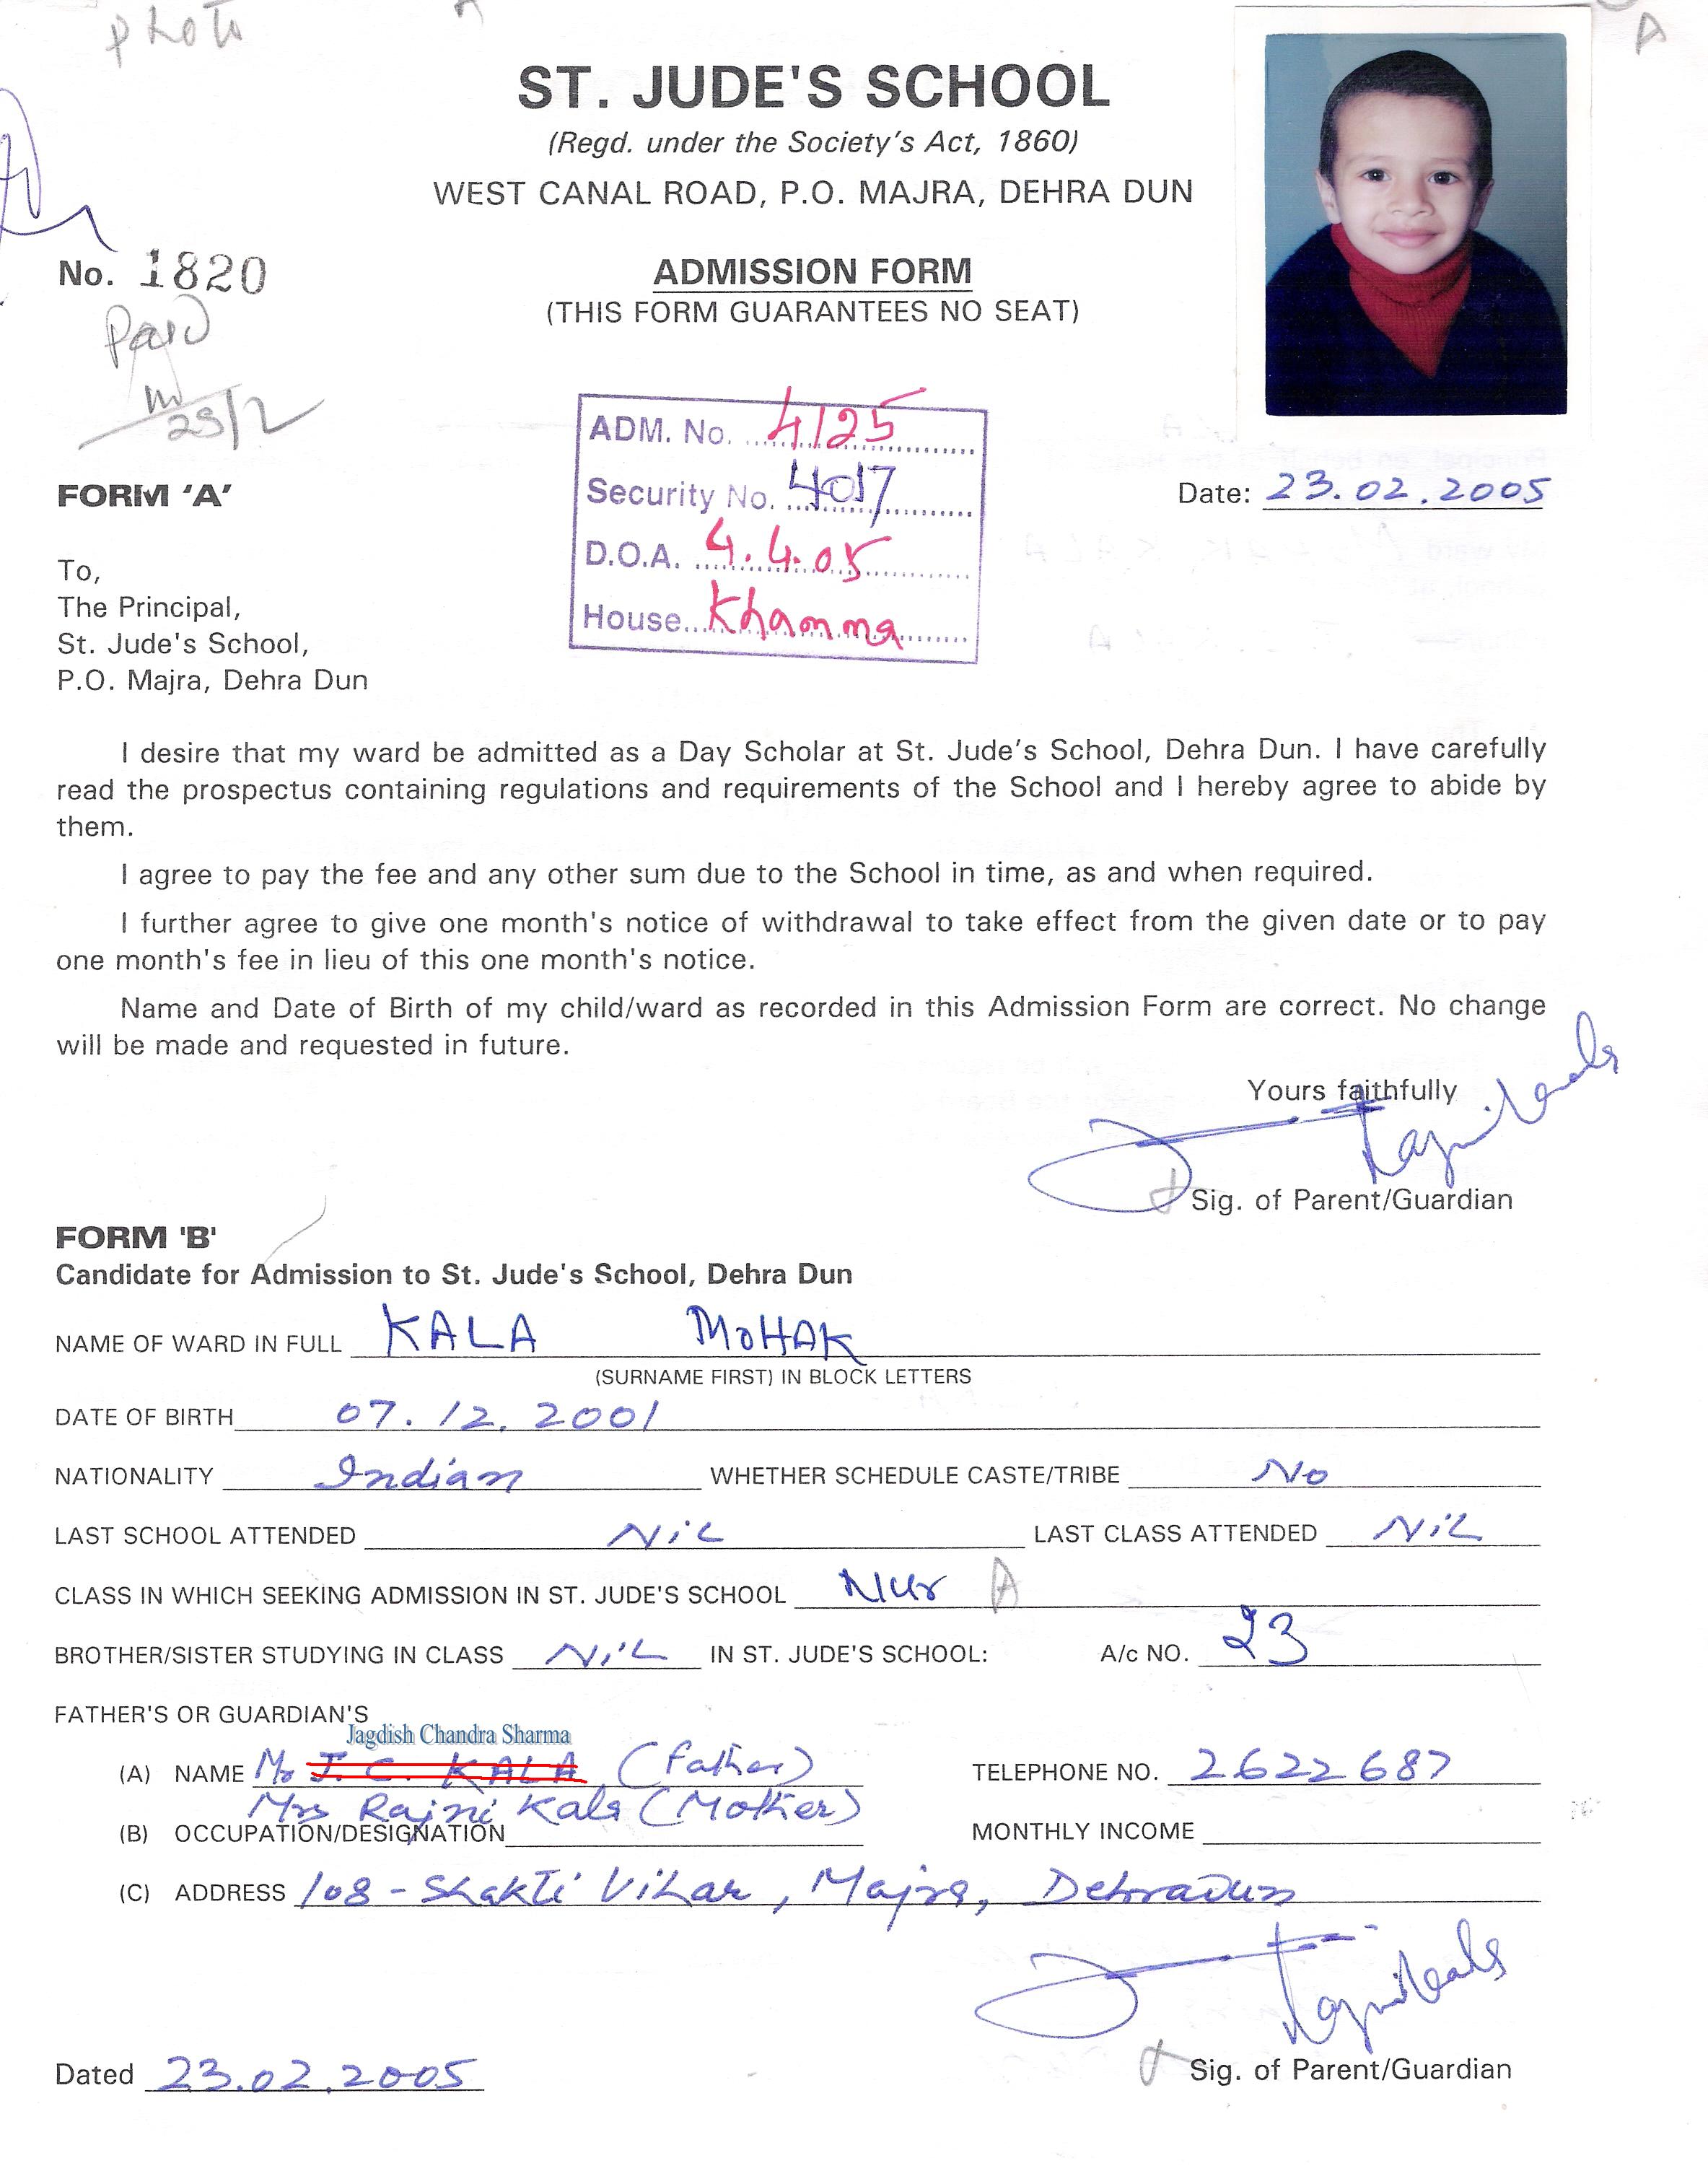 photo
A
A
ST. JUDE'S SCHOOL
(Regd. under the Society's Act, 1860)
WEST CANAL ROAD, P.O. MAJRA, DEHRA DUN
No. 1820
ADMISSION FORM
(THIS FORM GUARANTEES NO SEAT)
Paid
23/2
ADM. No. 4125
Security No. 4017
D.O.A. 4.4.05
House Khamma
FORM 'A'
Date: 23.02.2005
To,
The Principal,
St. Jude's School,
P.O. Majra, Dehra Dun
I desire that my ward be admitted as a Day Scholar at St. Jude's School, Dehra Dun. I have carefully
read the prospectus containing regulations and requirements of the School and I hereby agree to abide by
them.
I agree to pay the fee and any other sum due to the School in time, as and when required.
I further agree to give one month's notice of withdrawal to take effect from the given date or to pay
one month's fee in lieu of this one month's notice.
Name and Date of Birth of my child/ward as recorded in this Admission Form are correct. No change
will be made and requested in future.
Yours faithfully
Sig. of Parent/Guardian
FORM 'B'
Candidate for Admission to St. Jude's School, Dehra Dun
NAME OF WARD IN FULL KALA MOHAK
(SURNAME FIRST) IN BLOCK LETTERS
DATE OF BIRTH 07.12.2001
NATIONALITY Indian WHETHER SCHEDULE CASTE/TRIBE No
LAST SCHOOL ATTENDED Nil LAST CLASS ATTENDED Nil
CLASS IN WHICH SEEKING ADMISSION IN ST. JUDE'S SCHOOL Nur A
BROTHER/SISTER STUDYING IN CLASS Nil IN ST. JUDE'S SCHOOL: A/c NO. 23
FATHER'S OR GUARDIAN'S
Jagdish Chandra Sharma
(A) NAME Mr J. C. KALA (Father) TELEPHONE NO. 2622687
Mrs Rajni Kala (Mother)
(B) OCCUPATION/DESIGNATION MONTHLY INCOME
(C) ADDRESS 108-Shakti Vihar, Majra, Dehradun
Dated 23.02.2005
Sig. of Parent/Guardian